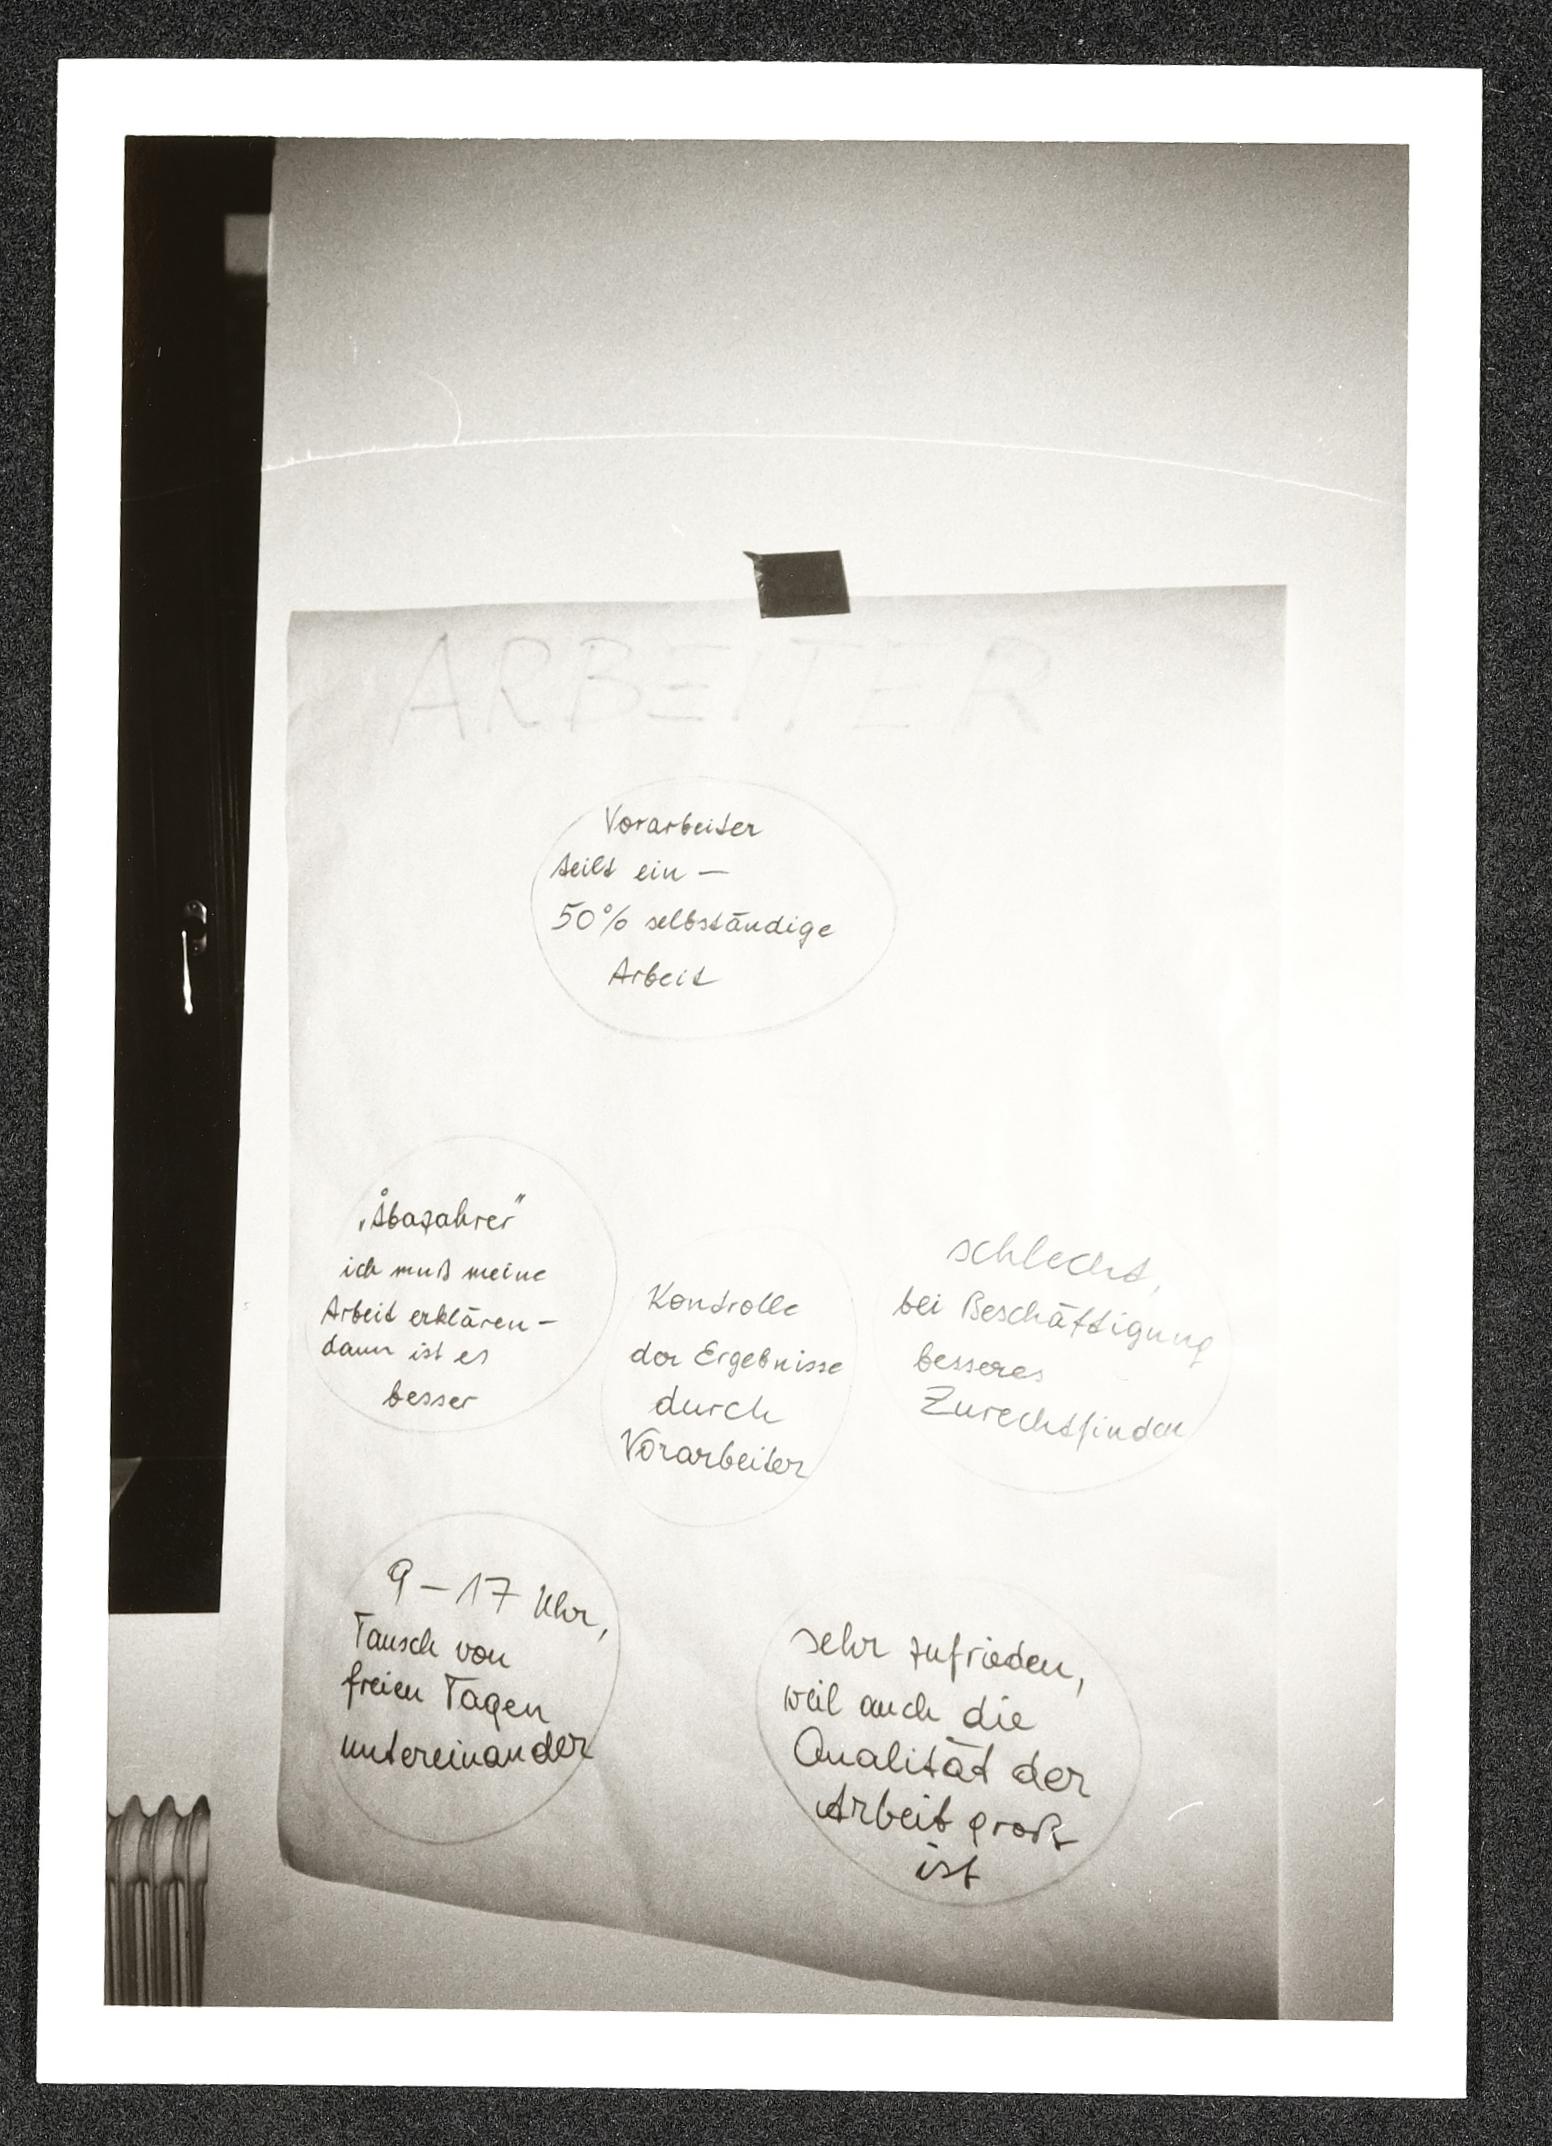 ARBEITER
Vorarbeiter
teilt ein —
50% selbständige
Arbeit
ich muß meine
Arbeit erklären –
dann ist es
besser
Kontrolle
der Ergebnisse
durch
Vorarbeiter
schlecht,
bei Beschäftigung
besseres
Zurechtfinden
9 – 17 Uhr,
Tausch von
freien Tagen
untereinander
sehr zufrieden,
weil auch die
Qualität der
Arbeit groß
ist